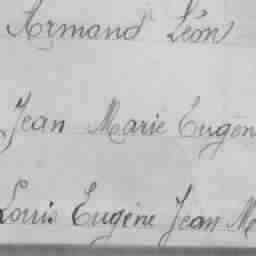 Armand Léon
Jean Marie Eugèn
Louis Eugène Jean M